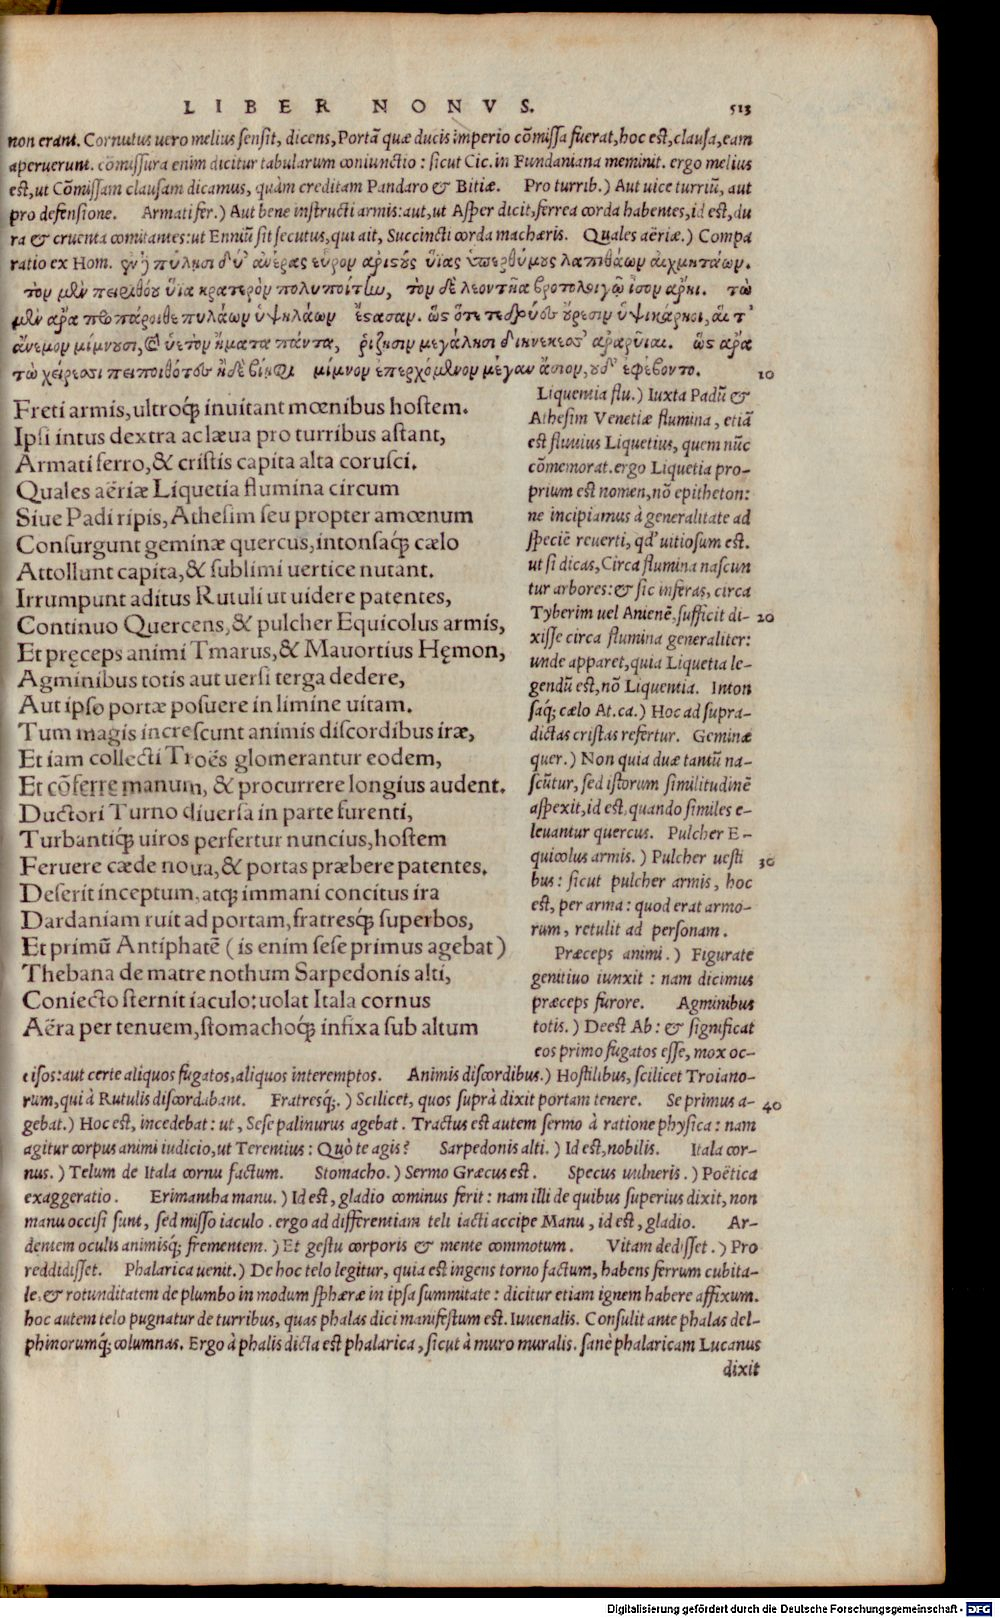 LIBER NONVS. 513
non erant. Cornutus vero melius sensit, dicens, Portã quæ ducis imperio cõmissa fuerat, hoc est, clausa, eam
aperuerunt. cõmissura enim dicitur tabularum coniunctio: sicut Cic. in Fundaniana meminit. ergo melius
est, ut Cõmissam clausam dicamus, quàm creditam Pandaro & Bitiæ. Pro turrib.) Aut uice turriũ, aut
pro defensione. Armati fer.) Aut bene instructi armis: aut, ut Asper dicit, ferrea corda habentes, id est, du
ra & cruenta comitantes: ut Enniũ sit secutus, qui ait, Succincti corda machæris. Quales aëriæ.) Compa
ratio ex Hom. ἐν ἢ πύλησι δύ᾽ ἀνέρας εὗρον ἀρίστους υἷας ὑπερθύμους λαπιθάων αἰχμητάων.
τὸν μὲν πειριθόου υἷα κρατερὸν πολυποίτην, τὸν δὲ λεοντῆα βροτολοιγῷ ἶσον ἄρηι. τὼ
μὲν ἄρα προπάροιθε πυλάων ὑψηλάων ἕστασαν. ὡς ὅτε τε δρύες οὔρεσιν ὑψικάρηοι, αἵ τ᾽
ἄνεμον μίμνουσι, καὶ ὑετὸν ἤματα πάντα, ῥίζησιν μεγάλησι διηνεκέεσσ᾽ ἀραρυῖαι. ὡς ἄρα
τὼ χείρεσσι πεποιθότες ἠδὲ βίηφι μίμνον ἐπερχόμενον μέγαν ἄσιον, οὐδ᾽ ἐφέβοντο. 10
Freti armis, ultroq; inuitant mœnibus hostem.
Ipsi intus dextra ac læua pro turribus astant,
Armati ferro, & cristis capita alta corusci.
Quales aëriæ Liquetia flumina circum
Siue Padi ripis, Athesim seu propter amœnum
Consurgunt geminæ quercus, intonsaq; cælo
Attollunt capita, & sublimi uertice nutant.
Irrumpunt aditus Rutuli ut uidere patentes,
Continuo Quercens, & pulcher Equicolus armis,
Et pręceps animi Tmarus, & Mauortius Hęmon,
Agminibus totis aut uersi terga dedere,
Aut ipso portæ posuere in limine uitam.
Tum magis increscunt animis discordibus iræ,
Et iam collecti Troës glomerantur eodem,
Et cõferre manum, & procurrere longius audent.
Ductori Turno diuersa in parte furenti,
Turbantiq; uiros perfertur nuncius, hostem
Feruere cæde noua, & portas præbere patentes.
Deserit inceptum, atq; immani concitus ira
Dardaniam ruit ad portam, fratresq; superbos,
Et primũ Antiphatẽ (is enim sese primus agebat)
Thebana de matre nothum Sarpedonis alti,
Coniecto sternit iaculo: uolat Itala cornus
Aëra per tenuem, stomachoq; infixa sub altum
Liquentia flu.) Iuxta Padũ &
Athesim Venetiæ flumina, etiã
est fluuius Liquetius, quem nũc
cõmemorat. ergo Liquetia pro-
prium est nomen, nõ epitheton:
ne incipiamus à generalitate ad
speciẽ reuerti, qd' uitiosum est.
ut si dicas, Circa flumina nascun
tur arbores: & sic inferas, circa
Tyberim uel Anienẽ, sufficit di- 20
xisse circa flumina generaliter:
unde apparet, quia Liquetia le-
gendũ est, nõ Liquentia. Inton
saq; cælo At. ca.) Hoc ad supra-
dictas cristas refertur. Geminæ
quer.) Non quia duæ tantũ na-
scũtur, sed istorum similitudinẽ
aspexit, id est, quando similes e-
leuantur quercus. Pulcher E-
quicolus armis.) Pulcher uesti 30
bus: sicut pulcher armis, hoc
est, per arma: quod erat armo-
rum, retulit ad personam.
Præceps animi.) Figurate
genitiuo iunxit: nam dicimus
præceps furore. Agminibus
totis.) Deest Ab: & significat
eos primo fugatos esse, mox oc-
cisos: aut certe aliquos fugatos, aliquos interemptos. Animis discordibus.) Hostilibus, scilicet Troiano-
rum, qui à Rutulis discordabant. Fratresq;.) Scilicet, quos suprà dixit portam tenere. Se primus a- 40
gebat.) Hoc est, incedebat: ut, Sese palinurus agebat. Tractus est autem sermo à ratione physica: nam
agitur corpus animi iudicio, ut Terentius: Quò te agis? Sarpedonis alti.) Id est, nobilis. Itala cor-
nus.) Telum de Itala cornu factum. Stomacho.) Sermo Græcus est. Specus uulneris.) Poëtica
exaggeratio. Erimantha manu.) Id est, gladio cominus ferit: nam illi de quibus superius dixit, non
manu occisi sunt, sed misso iaculo. ergo ad differentiam teli iacti accipe Manu, id est, gladio. Ar-
dentem oculis animisq; frementem.) Et gestu corporis & mente commotum. Vitam dedisset.) Pro
reddidisset. Phalarica uenit.) De hoc telo legitur, quia est ingens torno factum, habens ferrum cubita-
le, & rotunditatem de plumbo in modum sphæræ in ipsa summitate: dicitur etiam ignem habere affixum.
hoc autem telo pugnatur de turribus, quas phalas dici manifestum est. Iuuenalis. Consulit ante phalas del-
phinorumq; columnas. Ergo à phalis dicta est phalarica, sicut à muro muralis. sanè phalaricam Lucanus
dixit
Digitalisierung gefördert durch die Deutsche Forschungsgemeinschaft - DFG